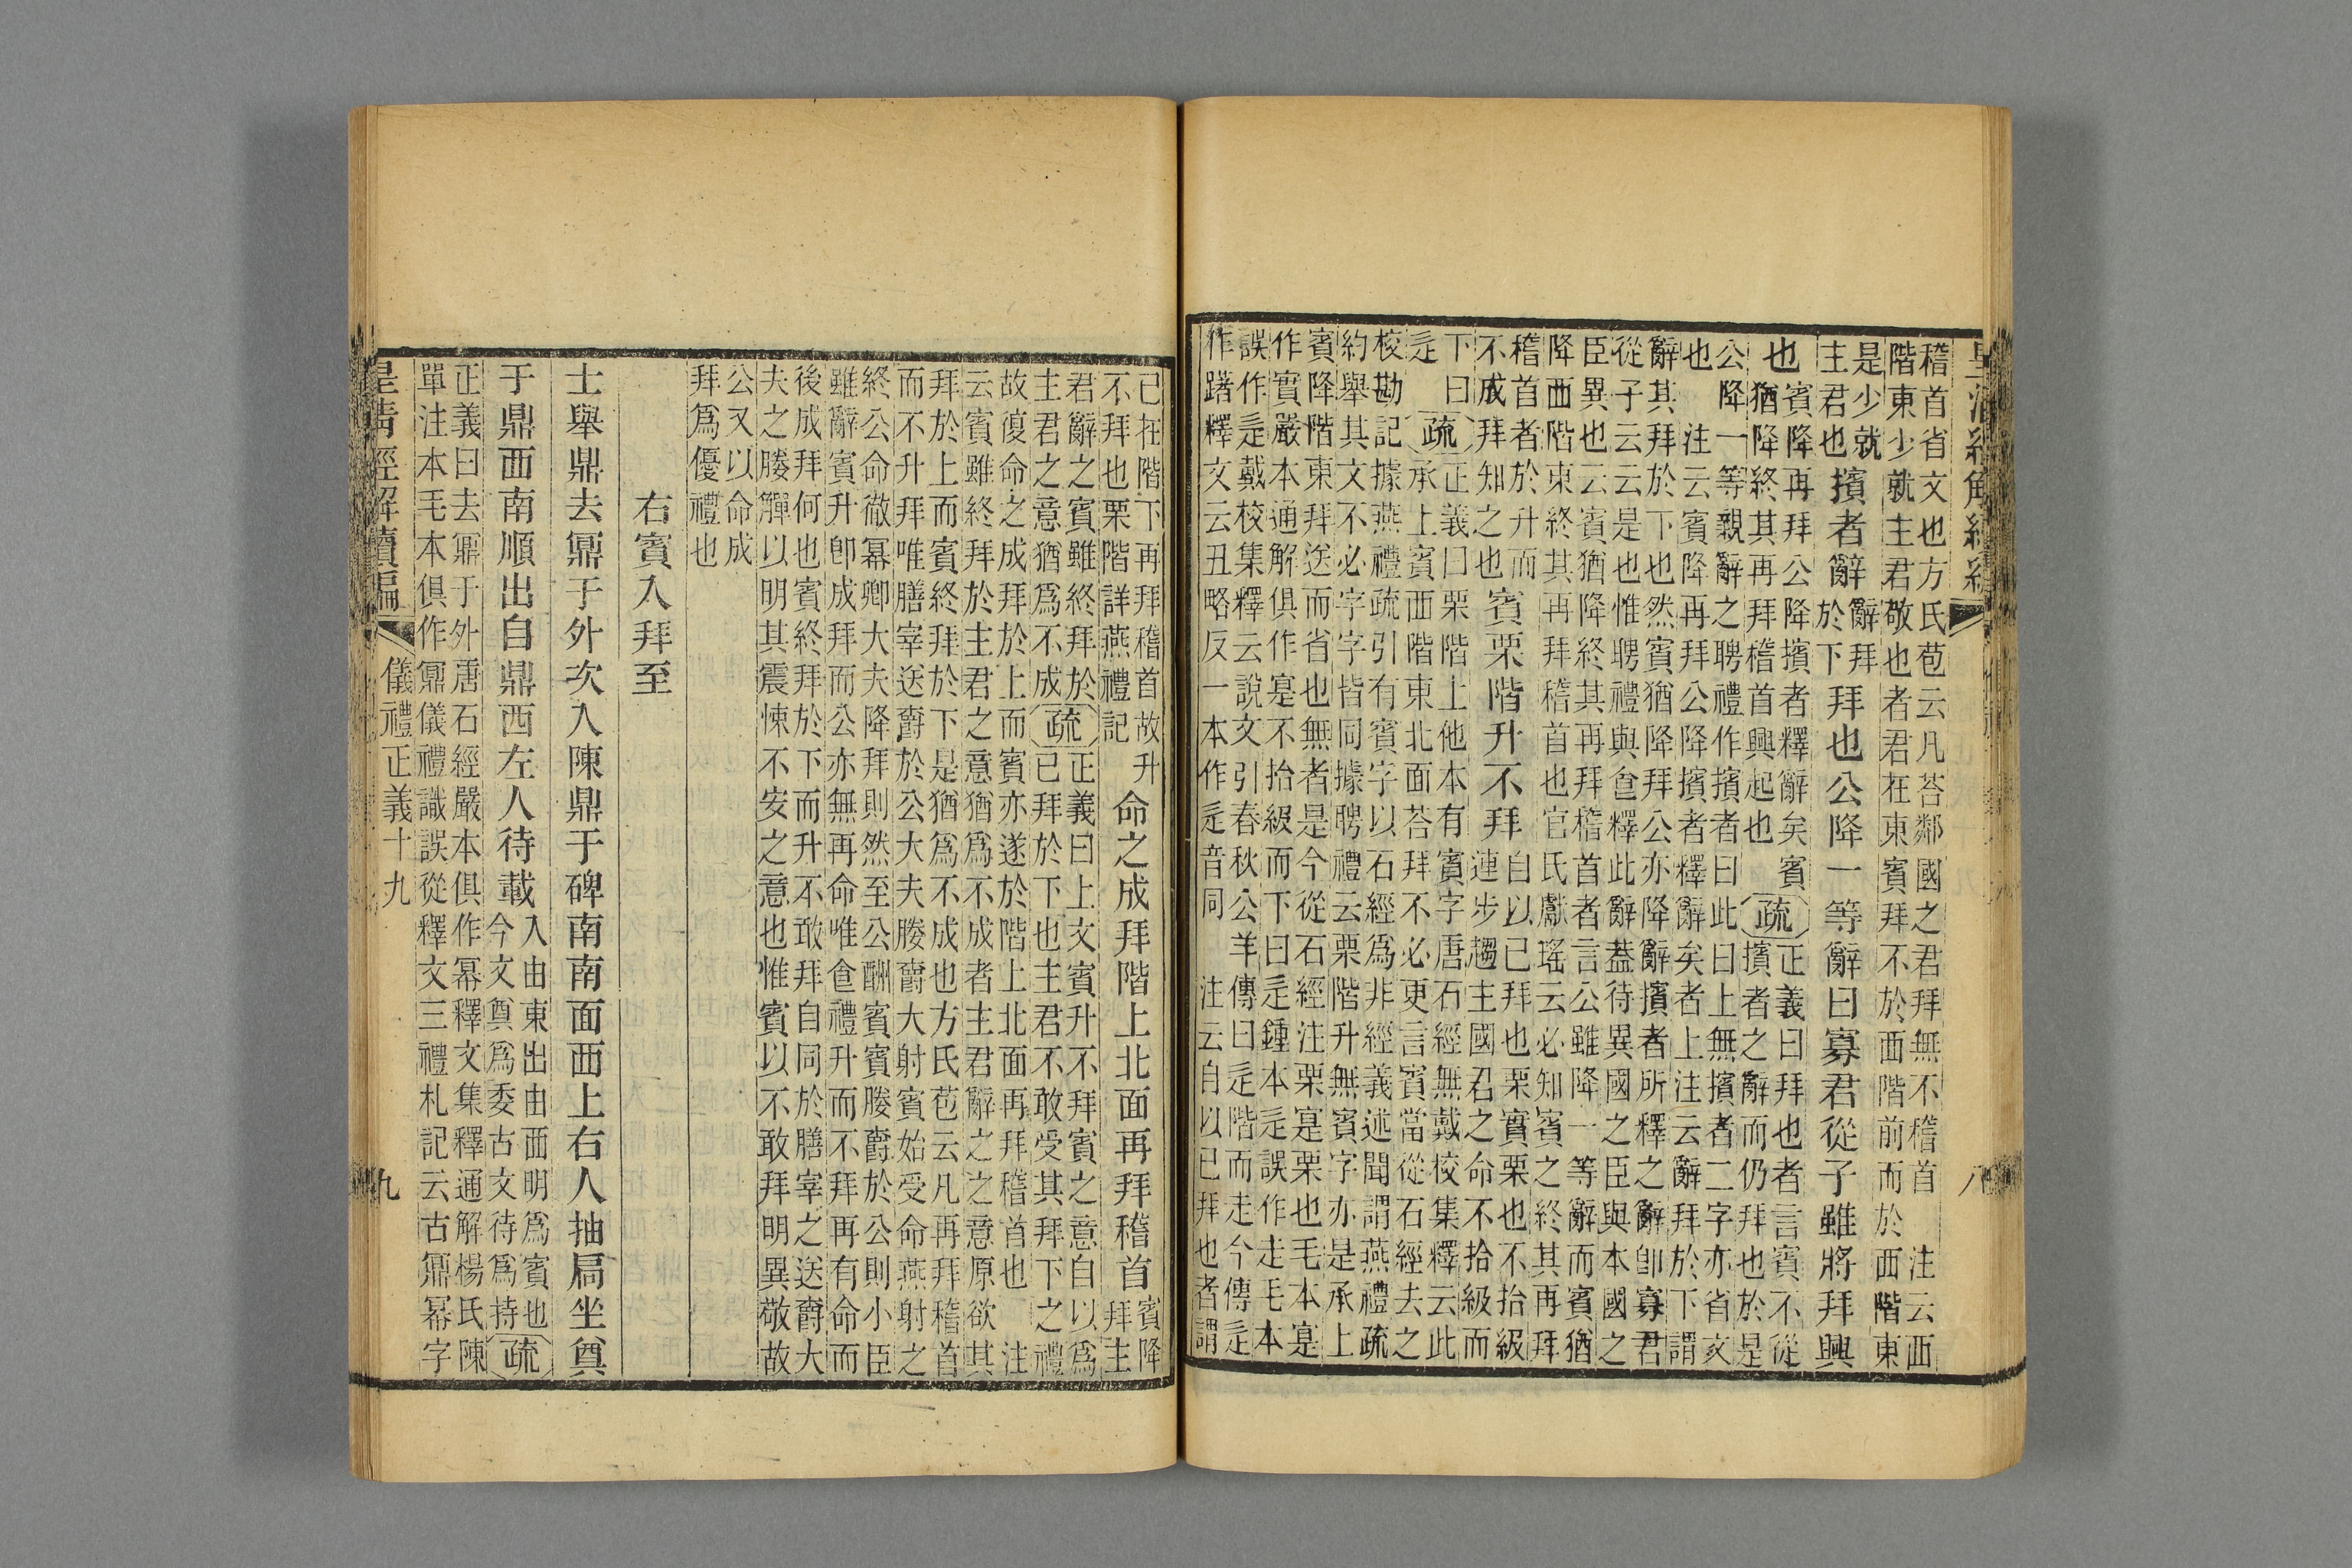 皇清經解續編
八
稽首省文也方氏苞云凡荅鄰國之君拜無不稽首　注云西
階東少就主君敬也者君在東賓拜不於西階前而於西階東
是少就
主君也
擯者辭
辭拜
於下
拜也公降一等辭曰寡君從子雖將拜興
也
賓降再拜公降擯者釋辭矣賓
猶降終其再拜稽首興起也
疏
正義曰拜也者言賓不從
擯者之辭而仍拜也於是
公降一等親辭之聘禮作擯者曰此曰上無擯者二字亦省文
也　注云賓降再拜公降擯者釋辭矣者上注云辭拜於下謂
辭其拜於下也然賓猶降拜公亦降辭擯者所釋之辭卽寡君
從子云云是也惟聘禮與食釋此辭蓋待異國之臣與本國之
臣異也云賓猶降終其再拜稽首者言公雖降一等辭而賓猶
降西階東終其再拜稽首也官氏獻瑤云必知賓之終其再拜
稽首者於升而
不成拜知之也
賓栗階升不拜
自以已拜也栗實栗也不拾級
連步趨主國君之命不拾級而
下曰
辵
疏
正義曰栗階上他本有賓字唐石經無戴校集釋云此
承上賓西階東北面荅拜不必更言賓當從石經去之
校勘記據燕禮疏引有賓字以石經爲非經義述聞謂燕禮疏
約舉其文不必字字皆同據聘禮云栗階升無賓字亦是承上
賓降階東拜送而省也無者是今從石經注栗寔栗也毛本寔
作實嚴本通解俱作寔不拾級而下曰辵鍾本辵誤作走毛本
誤作辵戴校集釋云說文引春秋公羊傳曰辵階而走今傳辵
作躇釋文云丑略反一本作辵音同　注云自以已拜也者謂
已在階下再拜稽首故升
不拜也栗階詳燕禮記
命之成拜階上北面再拜稽首
賓降
拜主
君辭之賓雖終拜於
主君之意猶爲不成
疏
正義曰上文賓升不拜賓之意自以爲
已拜於下也主君不敢受其拜下之禮
故復命之成拜於上而賓亦遂於階上北面再拜稽首也　注
云賓雖終拜於主君之意猶爲不成者主君辭之之意原欲其
拜於上而賓終拜於下是猶爲不成也方氏苞云凡再拜稽首
而不升拜唯膳宰送爵於公大夫媵爵大射賓始受命燕射之
終公命徹冪卿大夫降拜則然至公酬賓賓媵爵於公則小臣
雖辭賓升卽成拜而公亦無再命唯食禮升而不拜再有命而
後成拜何也賓終拜於下而升不敢拜自同於膳宰之送爵大
夫之媵觶以明其震悚不安之意也惟賓以不敢拜明異敬故
公又以命成
拜爲優禮也
右賓入拜至
士舉鼎去鼏于外次入陳鼎于碑南南面西上右人抽扃坐奠
于鼎西南順出自鼎西左人待載
入由東出由西明爲賓也
今文奠爲委古文待爲持
疏
正義曰去鼏于外唐石經嚴本俱作冪釋文集釋通解楊氏陳
單注本毛本俱作鼏儀禮識誤從釋文三禮札記云古鼏冪字
皇清經解續編
儀禮正義十九
九